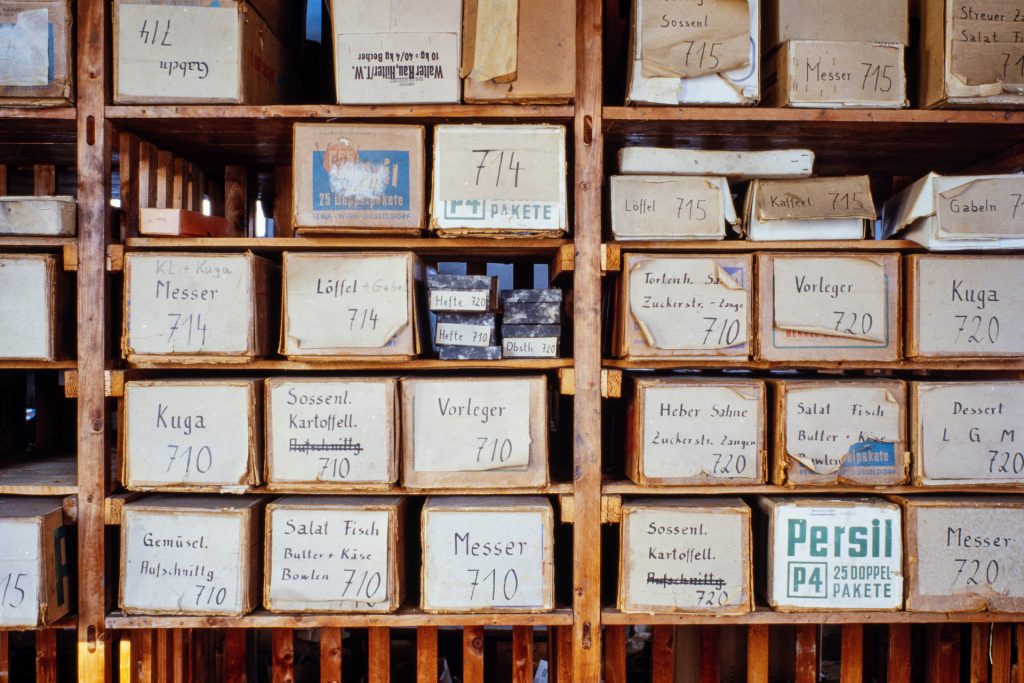 Gabeln
714
Walter Rau, Hilter/T.W.
10 kg = 40/4 kg Becher
Sossenl
715
Messer 715
Streuer
Salat Fisch
25 Doppelpakete
FEWA-WERK DÜSSELDORF
714
P4 PAKETE
Löffel 715
Kaffeel. 715
Gabeln
Kl. + Kuga
Messer
714
Löffel + Gabel
714
Hefte 720
Hefte 710
Obsth. 720
Tortenh.
Zuckerstr. - Zange
710
Vorleger
720
Kuga
720
Kuga
710
Sossenl.
Kartoffell.
Aufschnittg
710
Vorleger
710
Heber Sahne
Zuckerstr. Zangen
720
Salat Fisch
Butter + Käse
Bowlen
elpakete
DÜSSELDORF
Dessert
L G M
720
15
Gemüsel.
Aufschnittg
710
Salat Fisch
Butter + Käse
Bowlen 710
Messer
710
Sossenl.
Kartoffell.
Aufschnittg
720
Persil
P4 25 DOPPEL-
PAKETE
Messer
720